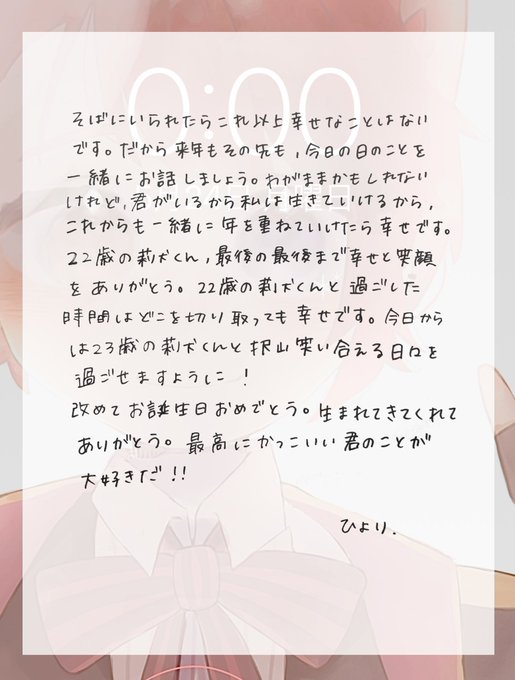 0:00
そばにいられたらこれ以上幸せなことはない
です。だから来年もその先も,今日の日のことを
一緒にお話しましょう。わがままかもしれない
けれど,君がいるから私は生きていけるから,
これからも一緒に年を重ねていけたら幸せです。
22歳の莉犬くん,最後の最後まで幸せと笑顔
をありがとう。22歳の莉犬くんと過ごした
時間はどこを切り取っても幸せです。今日から
は23歳の莉犬くんと沢山笑い合える日々を
過ごせますように!
改めてお誕生日おめでとう。生まれてきてくれて
ありがとう。最高にかっこいい君のことが
大好きだ!!
ひより.